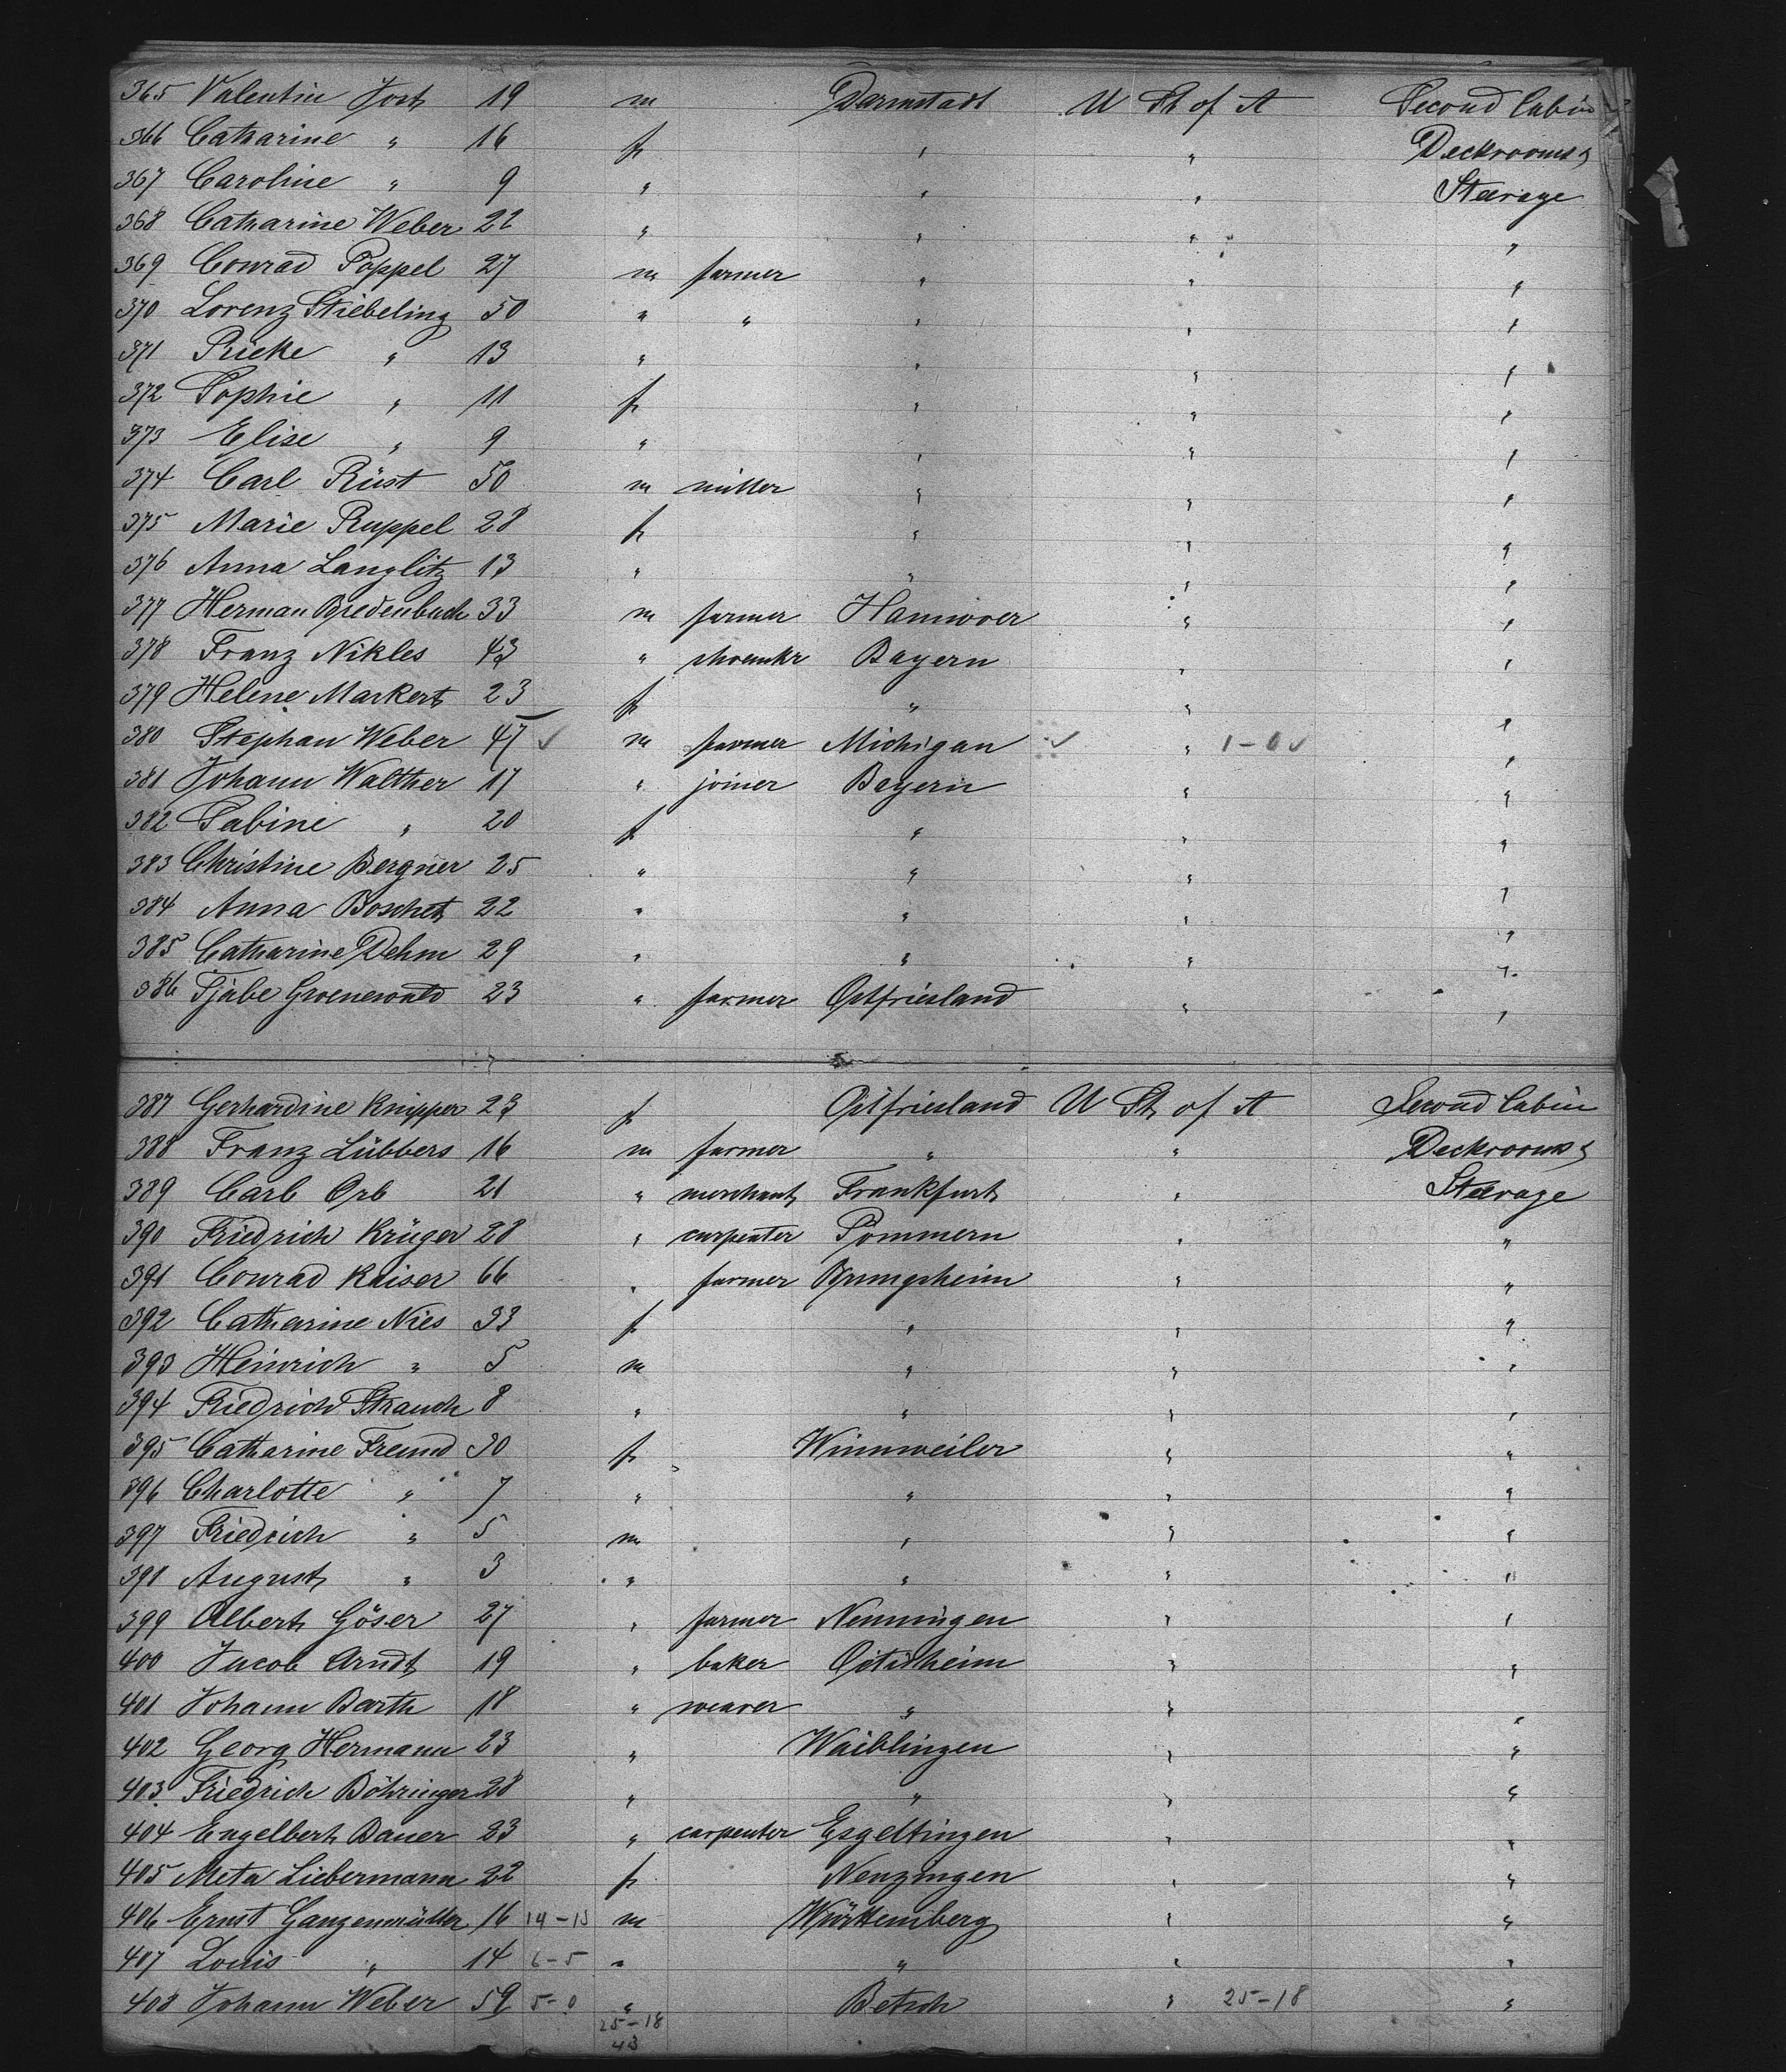 365 Valentin Jost 19 m Darmstadt U St of A Second Cabin
366 Catharine " 16 f " " Deckrooms &
367 Caroline " 9 " " " Steerage
368 Catharine Weber 22 " " " "
369 Conrad Poppel 27 m farmer " " "
370 Lorenz Stiebeling 50 " " " " "
371 Rieke " 13 " " " "
372 Sophie " 11 f " " "
373 Elise " 9 " " " "
374 Carl Rüst 50 m miller " " "
375 Marie Ruppel 28 f " " "
376 Anna Langlitz 13 " " " "
377 Herman Bredenbach 33 m farmer Hannover " "
378 Franz Nikles 43 " shoemkr Bayern " "
379 Helene Markert 23 f " " "
380 Stephan Weber 47 ✓ m farmer Michigan ✓ " 1-0 ✓ "
381 Johann Walther 17 " joiner Bayern " "
382 Sabine " 20 f " " "
383 Christine Bergner 25 " " " "
384 Anna Boschet 22 " " " "
385 Catharine Dehm 29 " " " "
386 Tjabe Groenewold 23 " farmer Ostfriesland " "
387 Gerhardine Knipper 23 f Ostfriesland U St of A Second Cabin
388 Franz Lübbers 16 m farmer " " Deckrooms &
389 Carl Orb 21 " merchant Frankfurt " Steerage
390 Friedrich Krüger 28 " carpenter Pommern " "
391 Conrad Kaiser 66 " farmer " "
392 Catharine Nies 33 f " " "
393 Heinrich " 5 m " " "
394 Friedrich Strauch 8 " " " "
395 Catharine Freund 30 f Winnweiler " "
396 Charlotte " 7 " " " "
397 Friedrich " 5 m " " "
398 August " 3 " " " "
399 Albert Göser 27 " farmer Nenningen " "
400 Jacob Arndt 19 " baker Oetisheim " "
401 Johann Barth 18 " weaver " " "
402 Georg Hermann 23 " Waiblingen " "
403 Friedrich Böhringer 28 " " " "
404 Engelbert Bauer 23 " carpenter Esgeltingen " "
405 Meta Liebermann 22 f Nenzingen " "
406 Ernst Ganzenmüller 16 14-13 m Württemberg " "
407 Louis " 14 6-5 " " " "
408 Johann Weber 59 5-0 " Betsch " 25-18 "
25-18
43